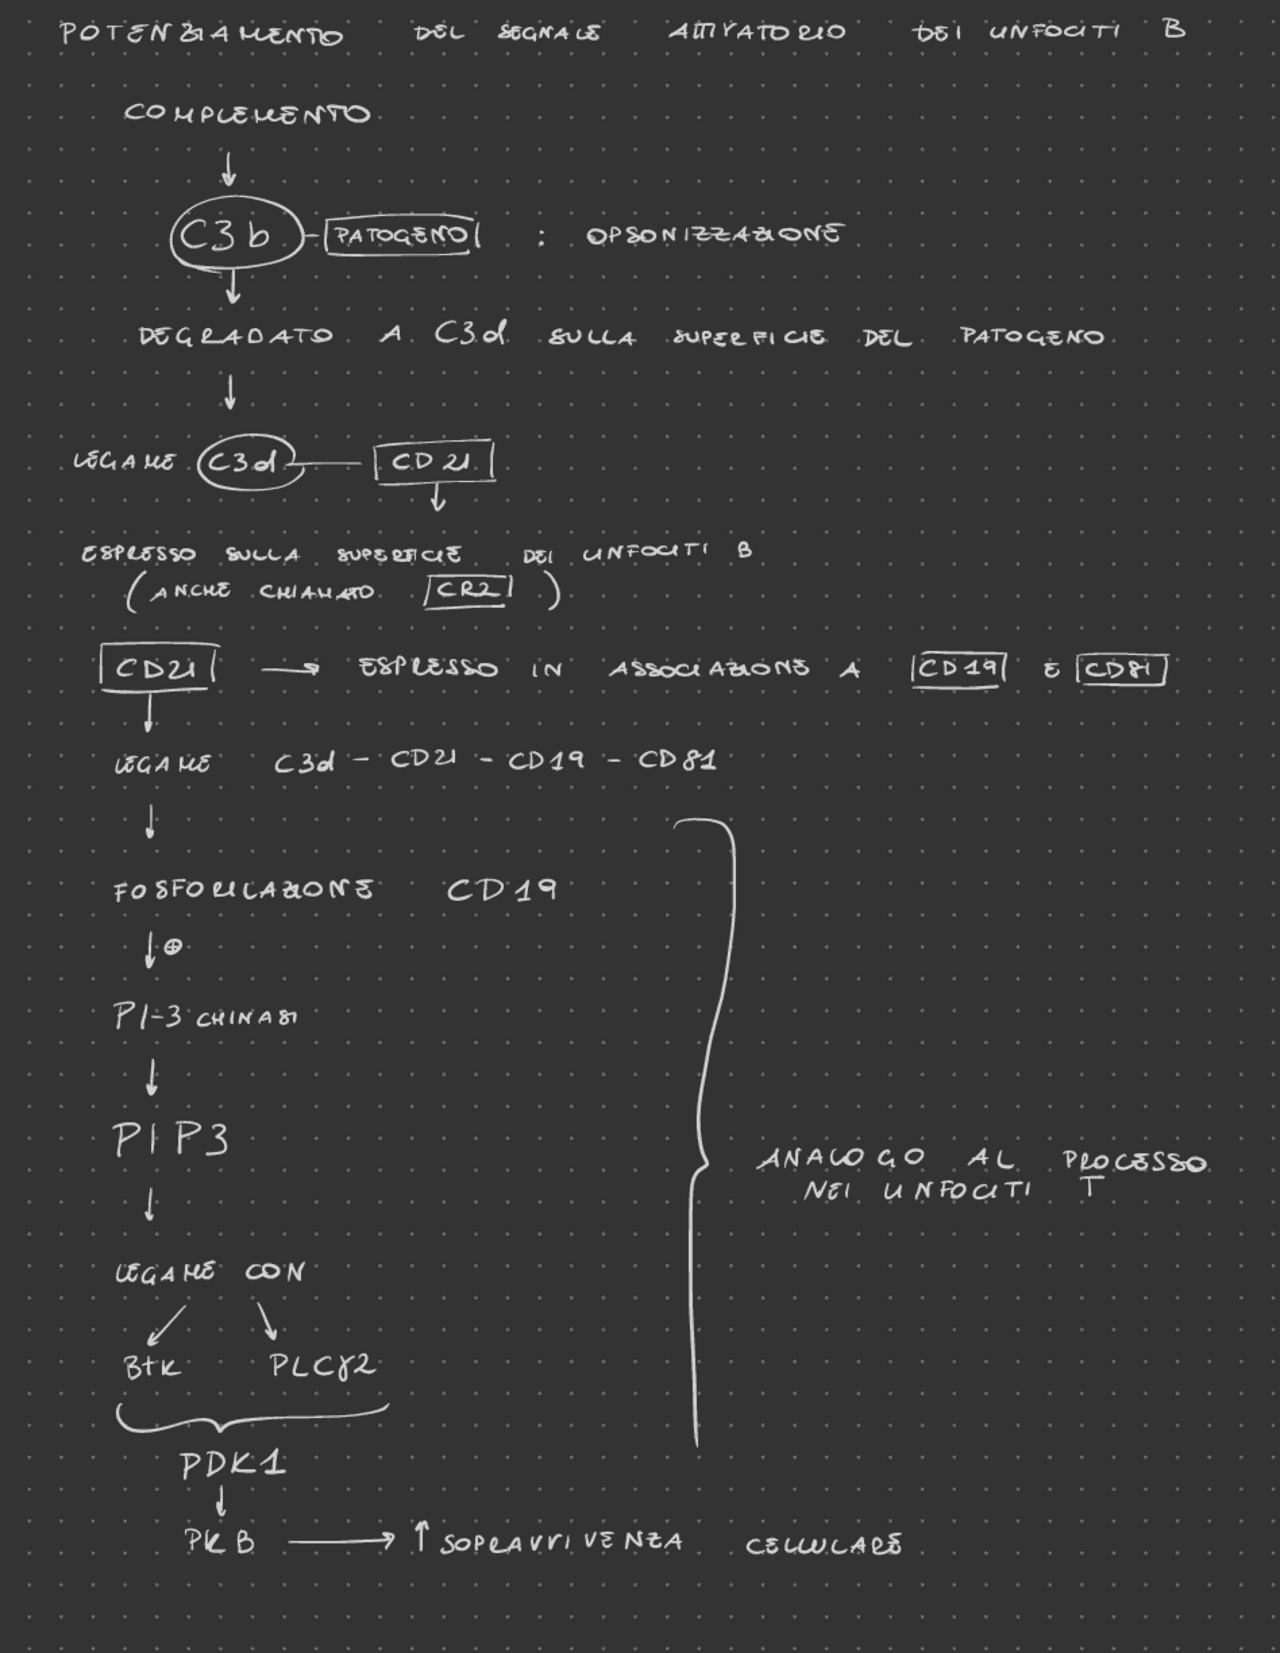 POTENZIAMENTO DEL SEGNALE ATTIVATORIO DEI LINFOCITI B
COMPLEMENTO
C3b - PATOGENO : OPSONIZZAZIONE
DEGRADATO A C3d SULLA SUPERFICIE DEL PATOGENO
LEGAME C3d CD21
ESPRESSO SULLA SUPERFICIE DEI LINFOCITI B
(ANCHE CHIAMATO CR2)
CD21 → ESPRESSO IN ASSOCIAZIONE A CD19 E CD81
LEGAME C3d - CD21 - CD19 - CD81
FOSFORILAZIONE CD19
↓ ⊕
PI-3 CHINASI
PIP3
ANALOGO AL PROCESSO
NEI LINFOCITI T
LEGAME CON
Btk PLCγ2
PDK1
PKB → ↑ SOPRAVVIVENZA CELLULARE